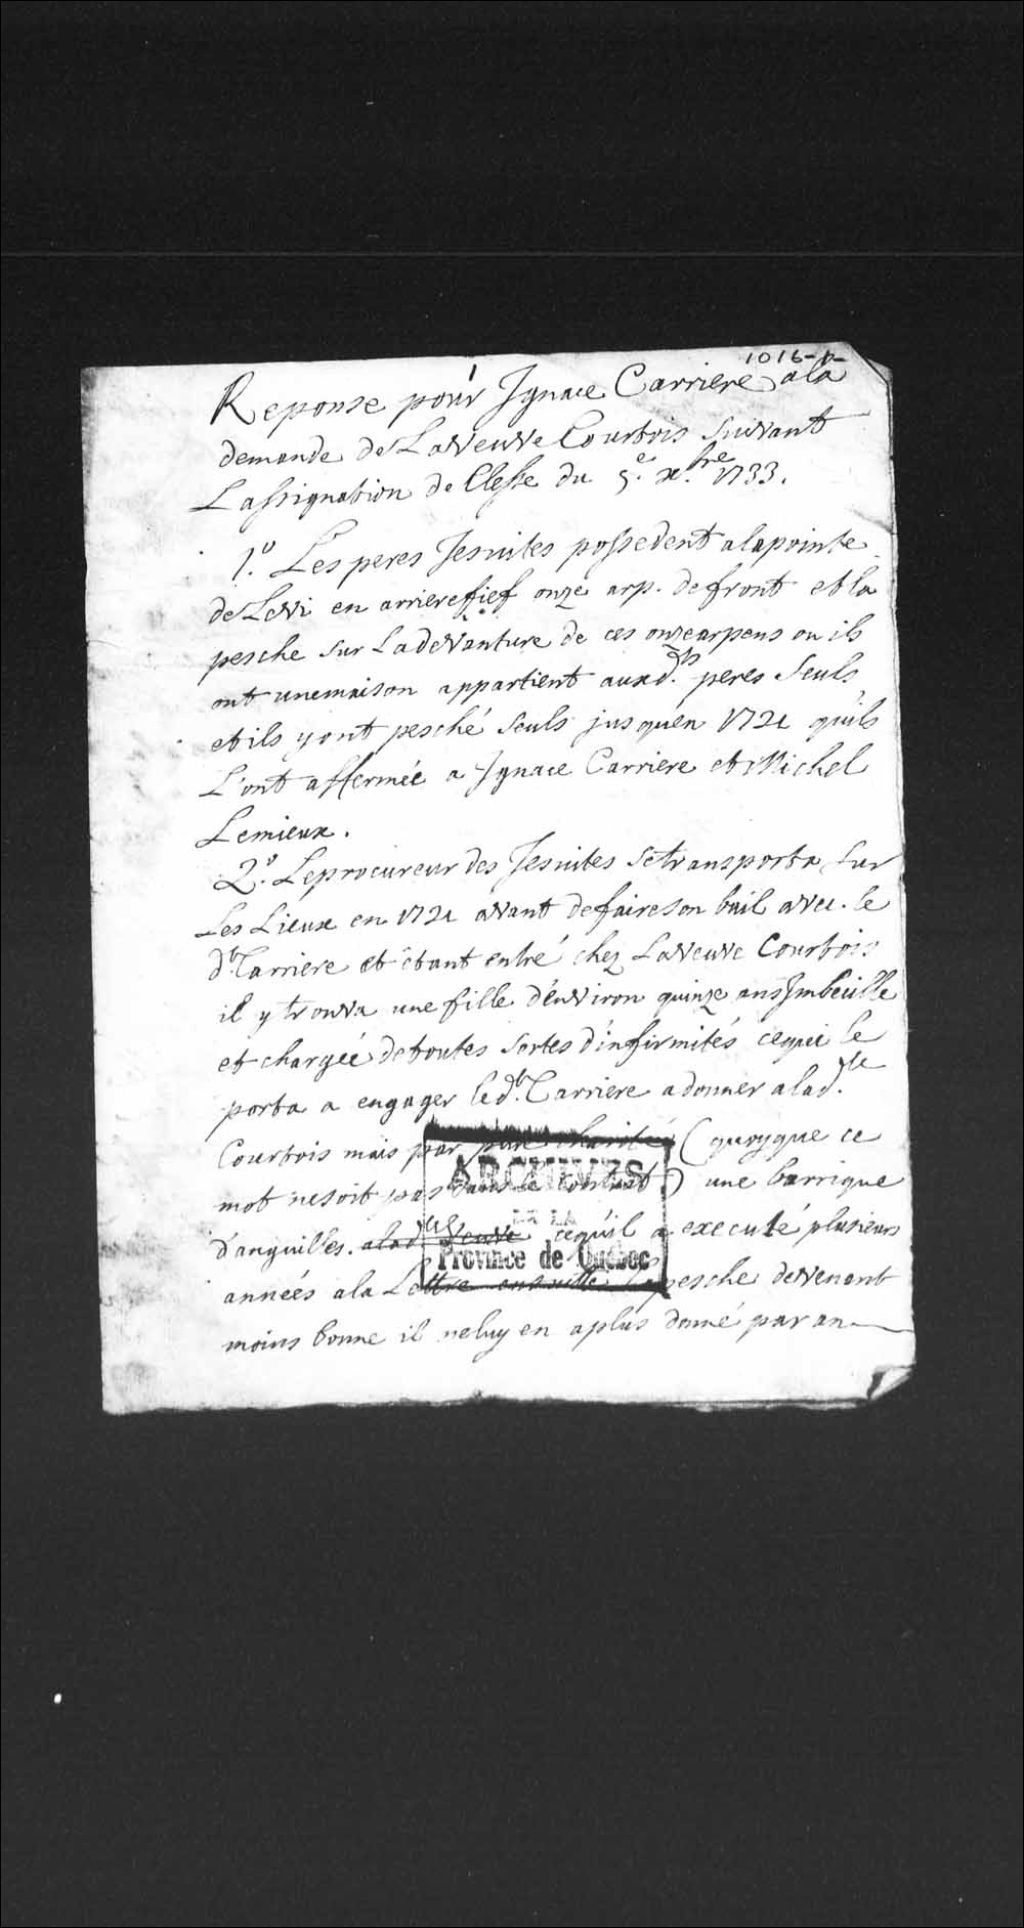 1016-1-
Reponse pour Ignace Carriere ala
demande de LaVeuve Courtois suivant
Lassignation de Clesse du 5.e xbre 1733.
1.º Les peres Jesuites possedent alapointe
deLeVi en arrierefief onze arp. defront et la
pesche sur LadeVanture de ces onzearpens ou ils
ont unemaison appartient auxd.ts peres seuls
et ils y ont pesché seuls jusquen 1721 quils
L'ont affermée a Ignace Carriere et Michel
Lemieux.
2.º Leprocureur des Jesuites setransporta sur
Les Lieux en 1721 avant defaireson bail avec le
d.t Carriere et étant entré chez LaVeuve Courtois
il y trouva une fille d'environ quinze ans Imbecille
et chargée detoutes sortes d'infirmités cequi le
porta a engager led.t Carriere adonner alad.te
Courtois mais par pure charité (quoyque ce
mot nesoit pas dans le contract) une barrique
d'anguilles. alad Veuve cequil a executé plusieurs
années ala Lettre ensuitte Lapesche deVenant
moins bonne il neluy en aplus donné par an
ARCHIVES
DE LA
Province de Québec